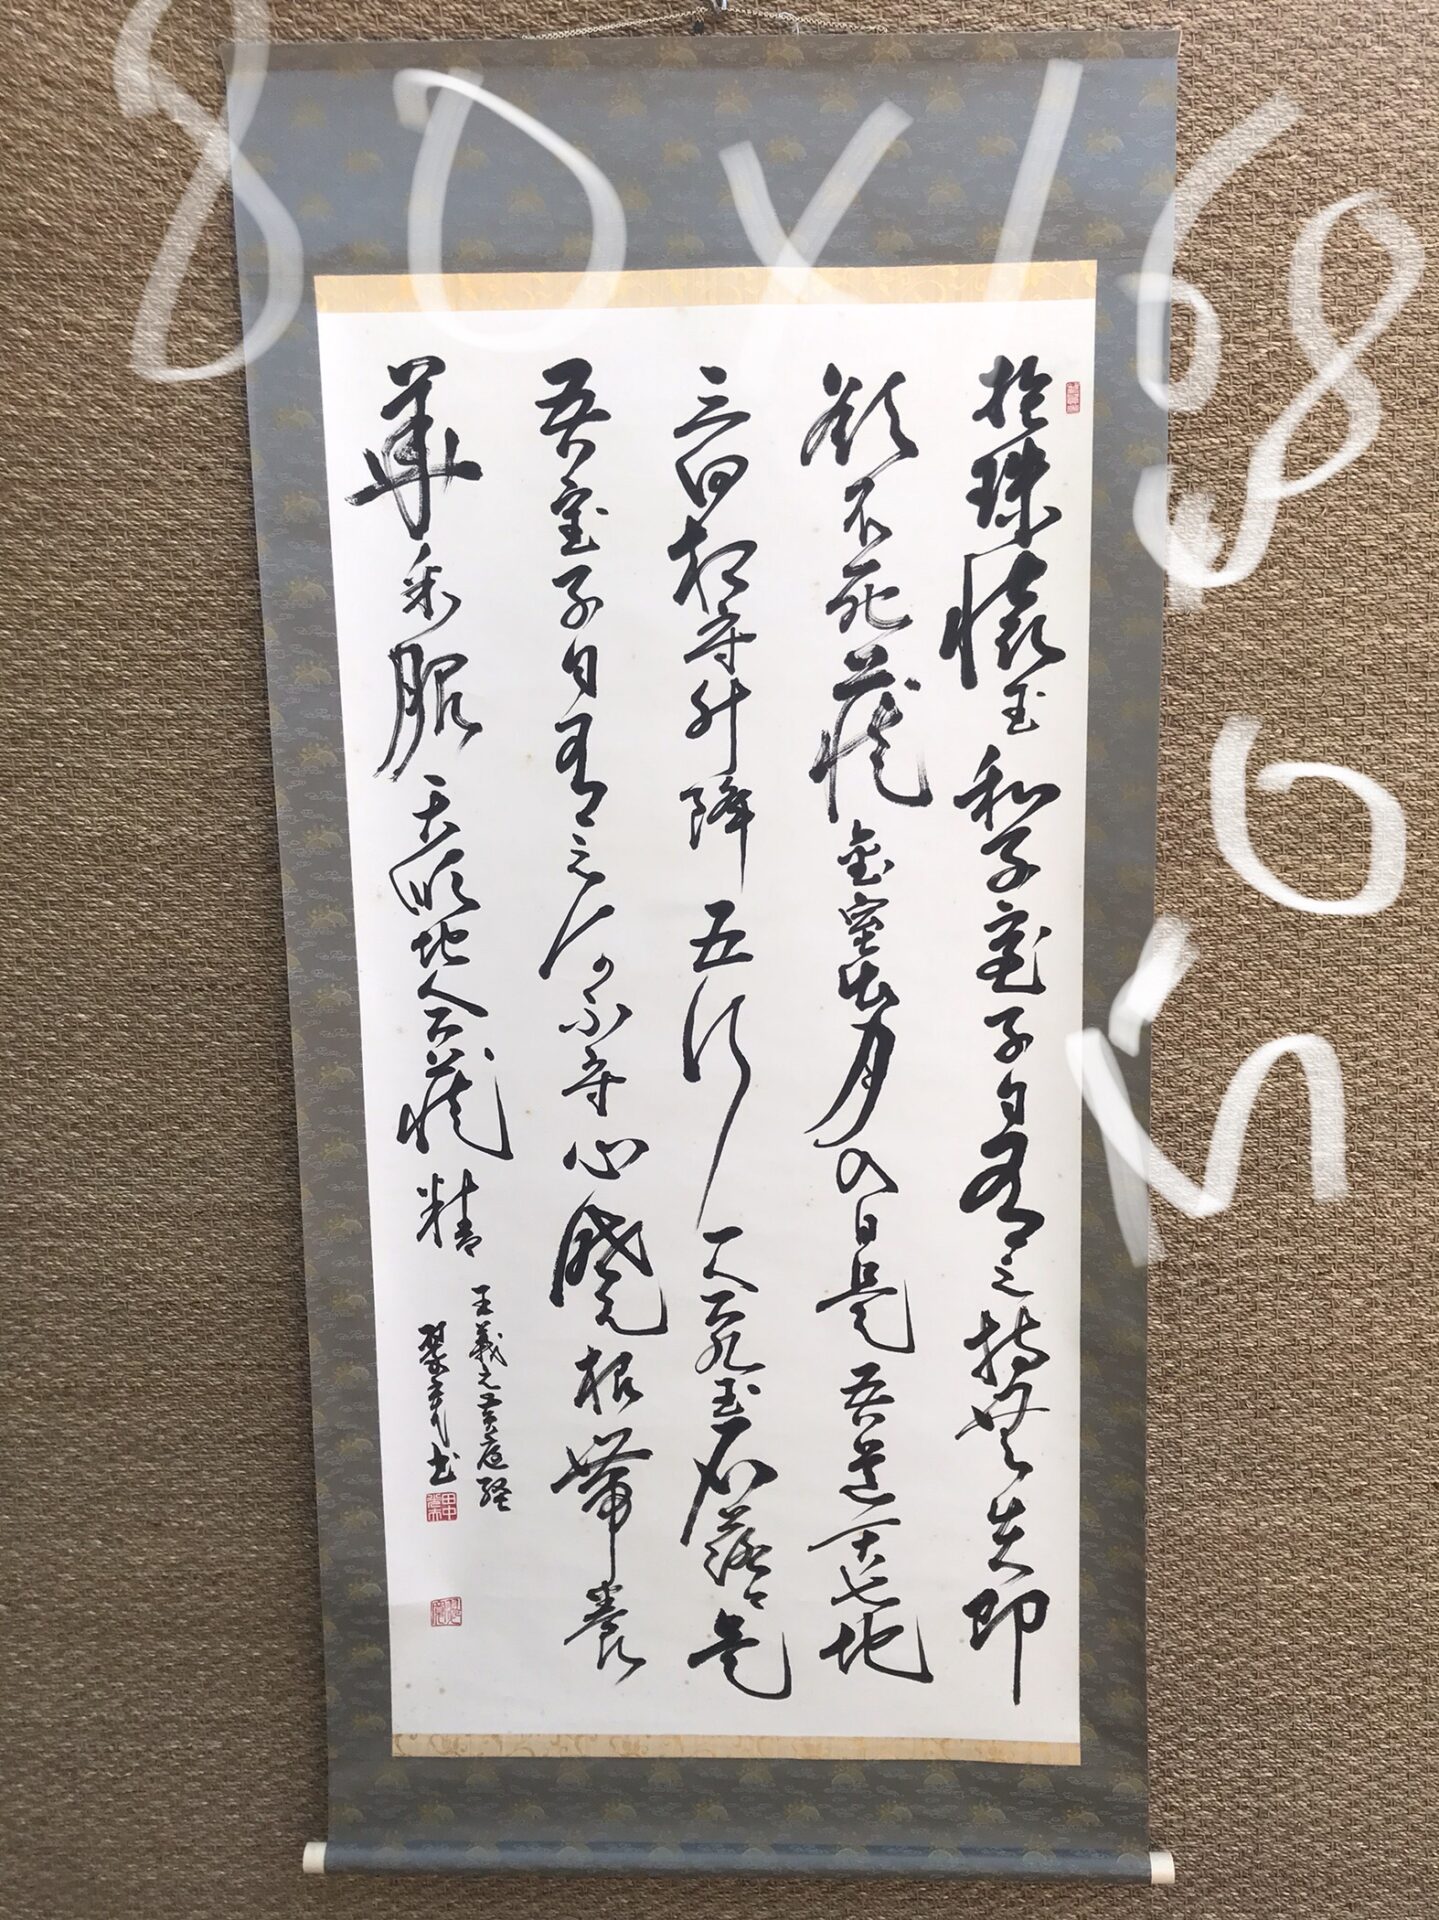 80x168
抱珠懐玉和子室子自有之持無失即
欲不死藏金室出月入日是吾道天七地
三回相守升降五行一合九玉石落〻是
吾宝子自有之何不守心曉根蔕養
華采服天順地合藏精
王羲之黄庭経
書
田中